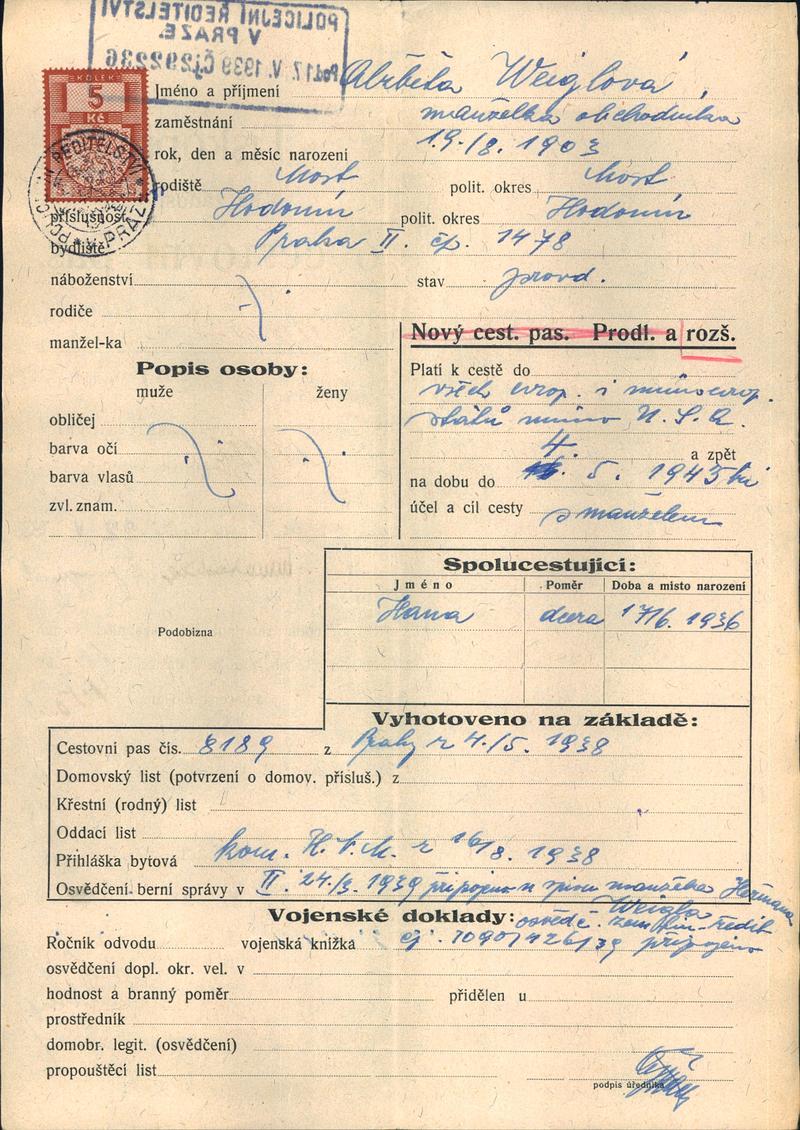 POLICEJNÍ ŘEDITELSTVÍ
V PRAZE.
Pod 17. V. 1939 Čj 292236
KOLEK
5
Kč
Jméno a příjmení Alžběta Weiglová
zaměstnání manželka obchodníka
rok, den a měsíc narození 19./8. 1903
rodiště Most polit. okres Most
příslušnost Hodonín polit. okres Hodonín
bydliště Praha II. čp. 1478
náboženství stav provd.
rodiče
manžel-ka
Nový cest. pas. Prodl. a rozš.
Popis osoby:
muže ženy
obličej
barva očí
barva vlasů
zvl. znam.
Platí k cestě do
všech evrop. i mimoevrop.
států mimo U. S. A.
a zpět
na dobu do 4. 5. 1943
účel a cíl cesty s manželem
Spolucestující:
Jméno Poměr Doba a místo narození
Hana dcera 17/6. 1936
Podobizna
Vyhotoveno na základě:
Cestovní pas čís. 8189 z Prahy z 4./5. 1938
Domovský list (potvrzení o domov. přísluš.) z
Křestní (rodný) list
Oddací list
Přihláška bytová kom. H. V. M. z 16/8. 1938
Osvědčení berní správy v II. 24/3. 1939 připojeno u spisu manžela Heřmana
Weigla
Vojenské doklady: osvědč. zem. fin. ředit.
Ročník odvodu vojenská knížka čj. 1090/426/39 připojeno
osvědčení dopl. okr. vel. v
hodnost a branný poměr přidělen u
prostředník
domobr. legit. (osvědčení)
propouštěcí list
podpis úředníka